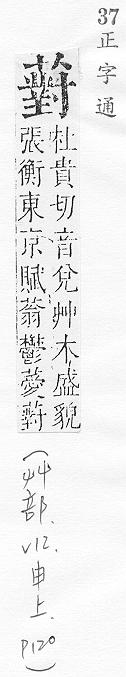 37正字通
薱
杜貴切音兌艸木盛貌
張衡東京賦蓊鬱薆薱
(艸部.V12.申上.P120)